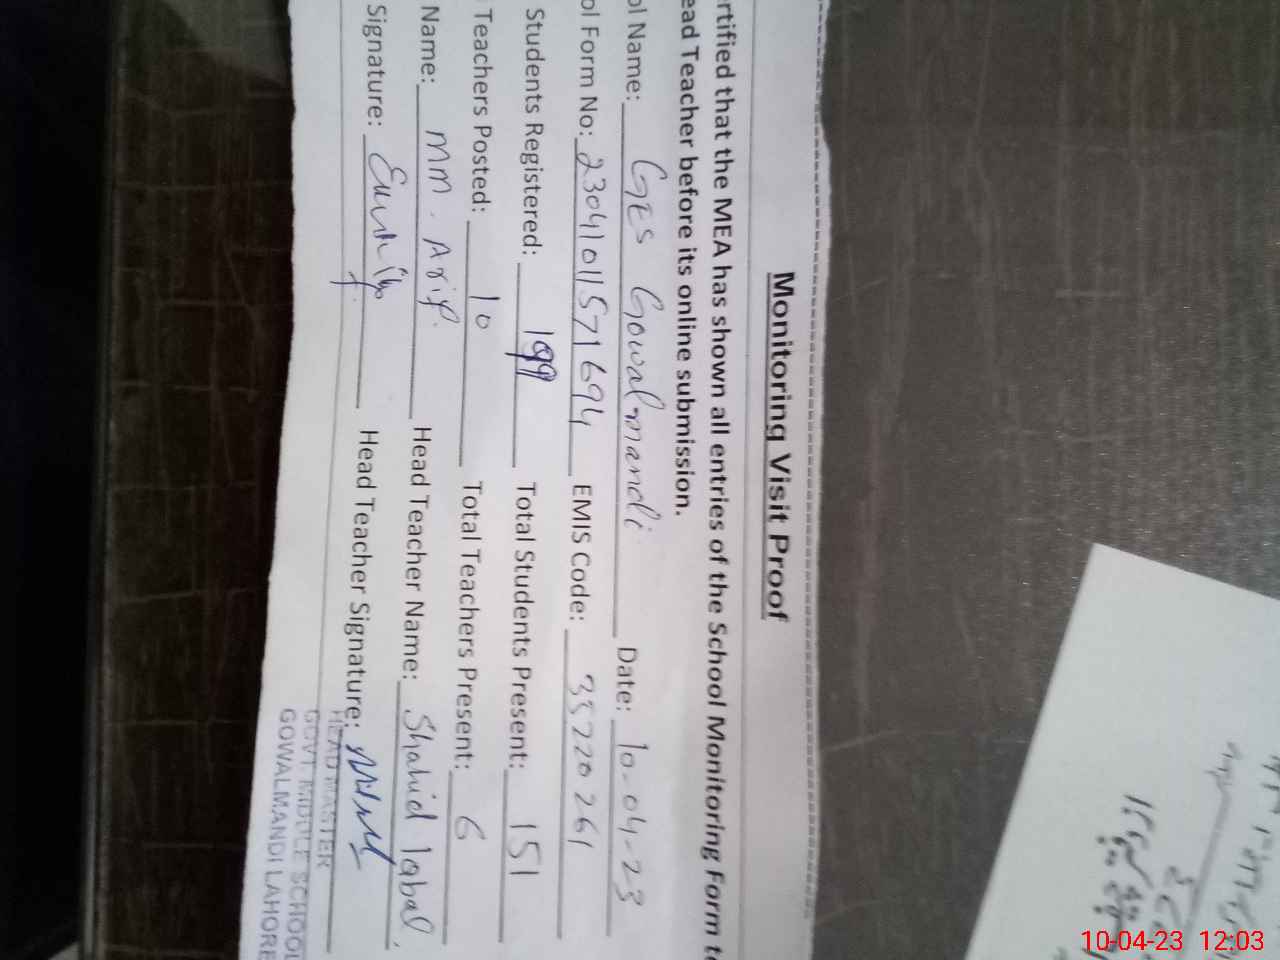 Monitoring Visit Proof
rtified that the MEA has shown all entries of the School Monitoring Form t
ead Teacher before its online submission.
ol Name: GES Gowalmandi Date: 10-04-23
ol Form No: 23041011571694 EMIS Code: 35220261
Students Registered: 199 Total Students Present: 151
Teachers Posted: 10 Total Teachers Present: 6
Name: MM. Arif. Head Teacher Name: Shahid Iqbal,
Signature: Head Teacher Signature:
HEAD MASTER
GOVT. MIDDLE SCHOOL
GOWALMANDI LAHORE
10-04-23 12:03